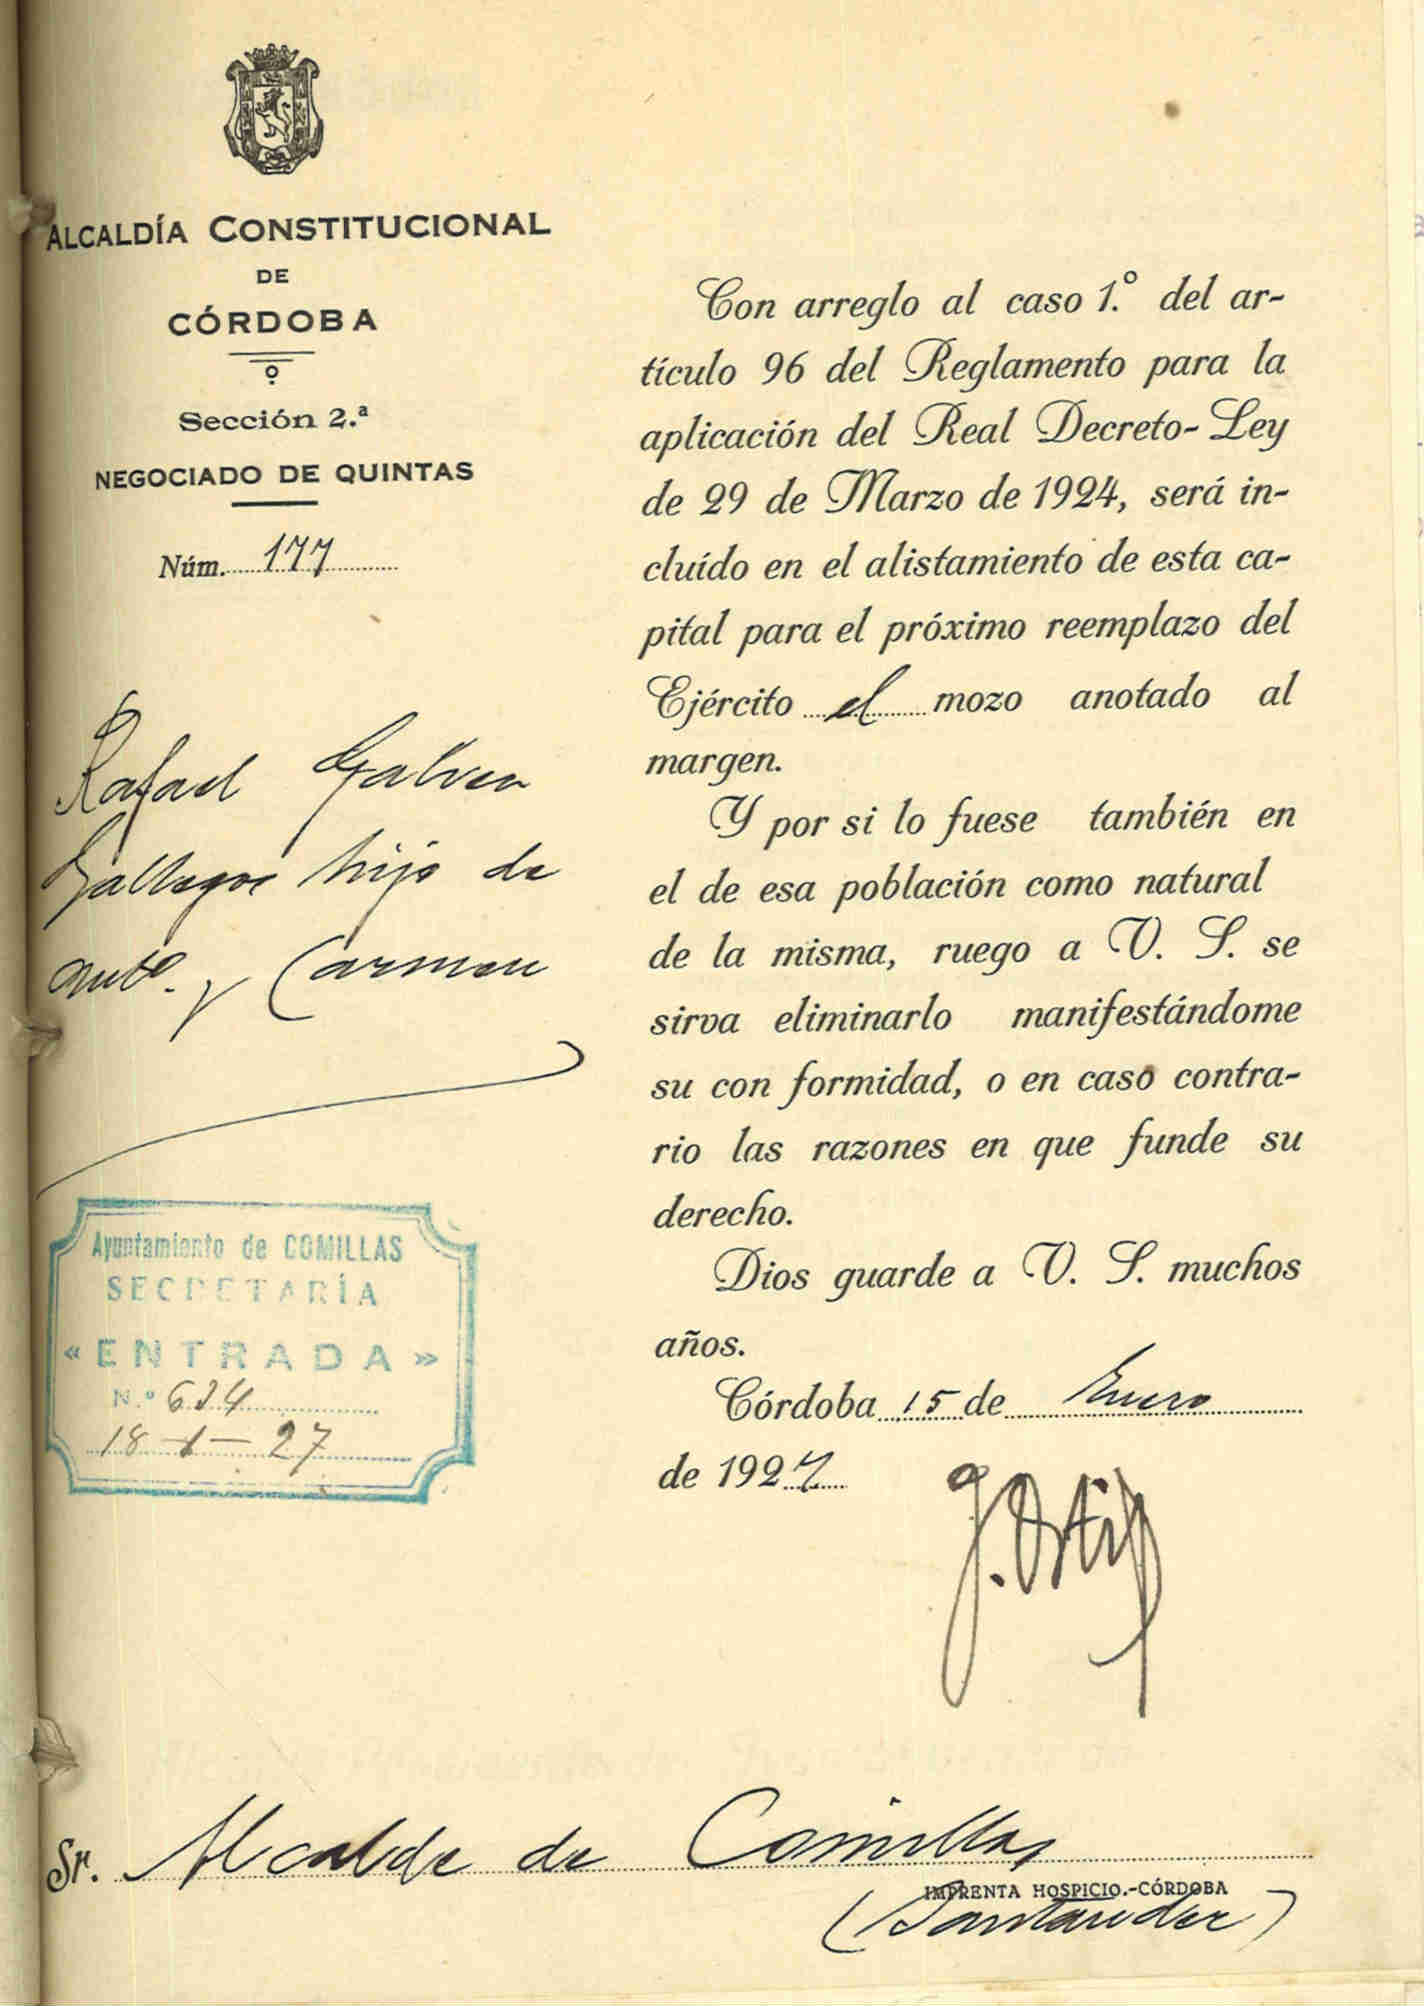 ALCALDÍA CONSTITUCIONAL
DE
CÓRDOBA
Sección 2.ª
NEGOCIADO DE QUINTAS
Núm. 177
Rafael Galvez
Gallegos hijo de
Antº. y Carmen
Ayuntamiento de COMILLAS
SECRETARÍA
«ENTRADA»
N.º 634
18-1-27
Con arreglo al caso 1.º del ar-
tículo 96 del Reglamento para la
aplicación del Real Decreto-Ley
de 29 de Marzo de 1924, será in-
cluído en el alistamiento de esta ca-
pital para el próximo reemplazo del
Ejército el mozo anotado al
margen.
Y por si lo fuese también en
el de esa población como natural
de la misma, ruego a V. S. se
sirva eliminarlo manifestándome
su con formidad, o en caso contra-
rio las razones en que funde su
derecho.
Dios guarde a V. S. muchos
años.
Córdoba 15 de Enero
de 1927
J. Ortiz
Sr. Alcalde de Comillas
IMPRENTA HOSPICIO.-CÓRDOBA
(Santander)